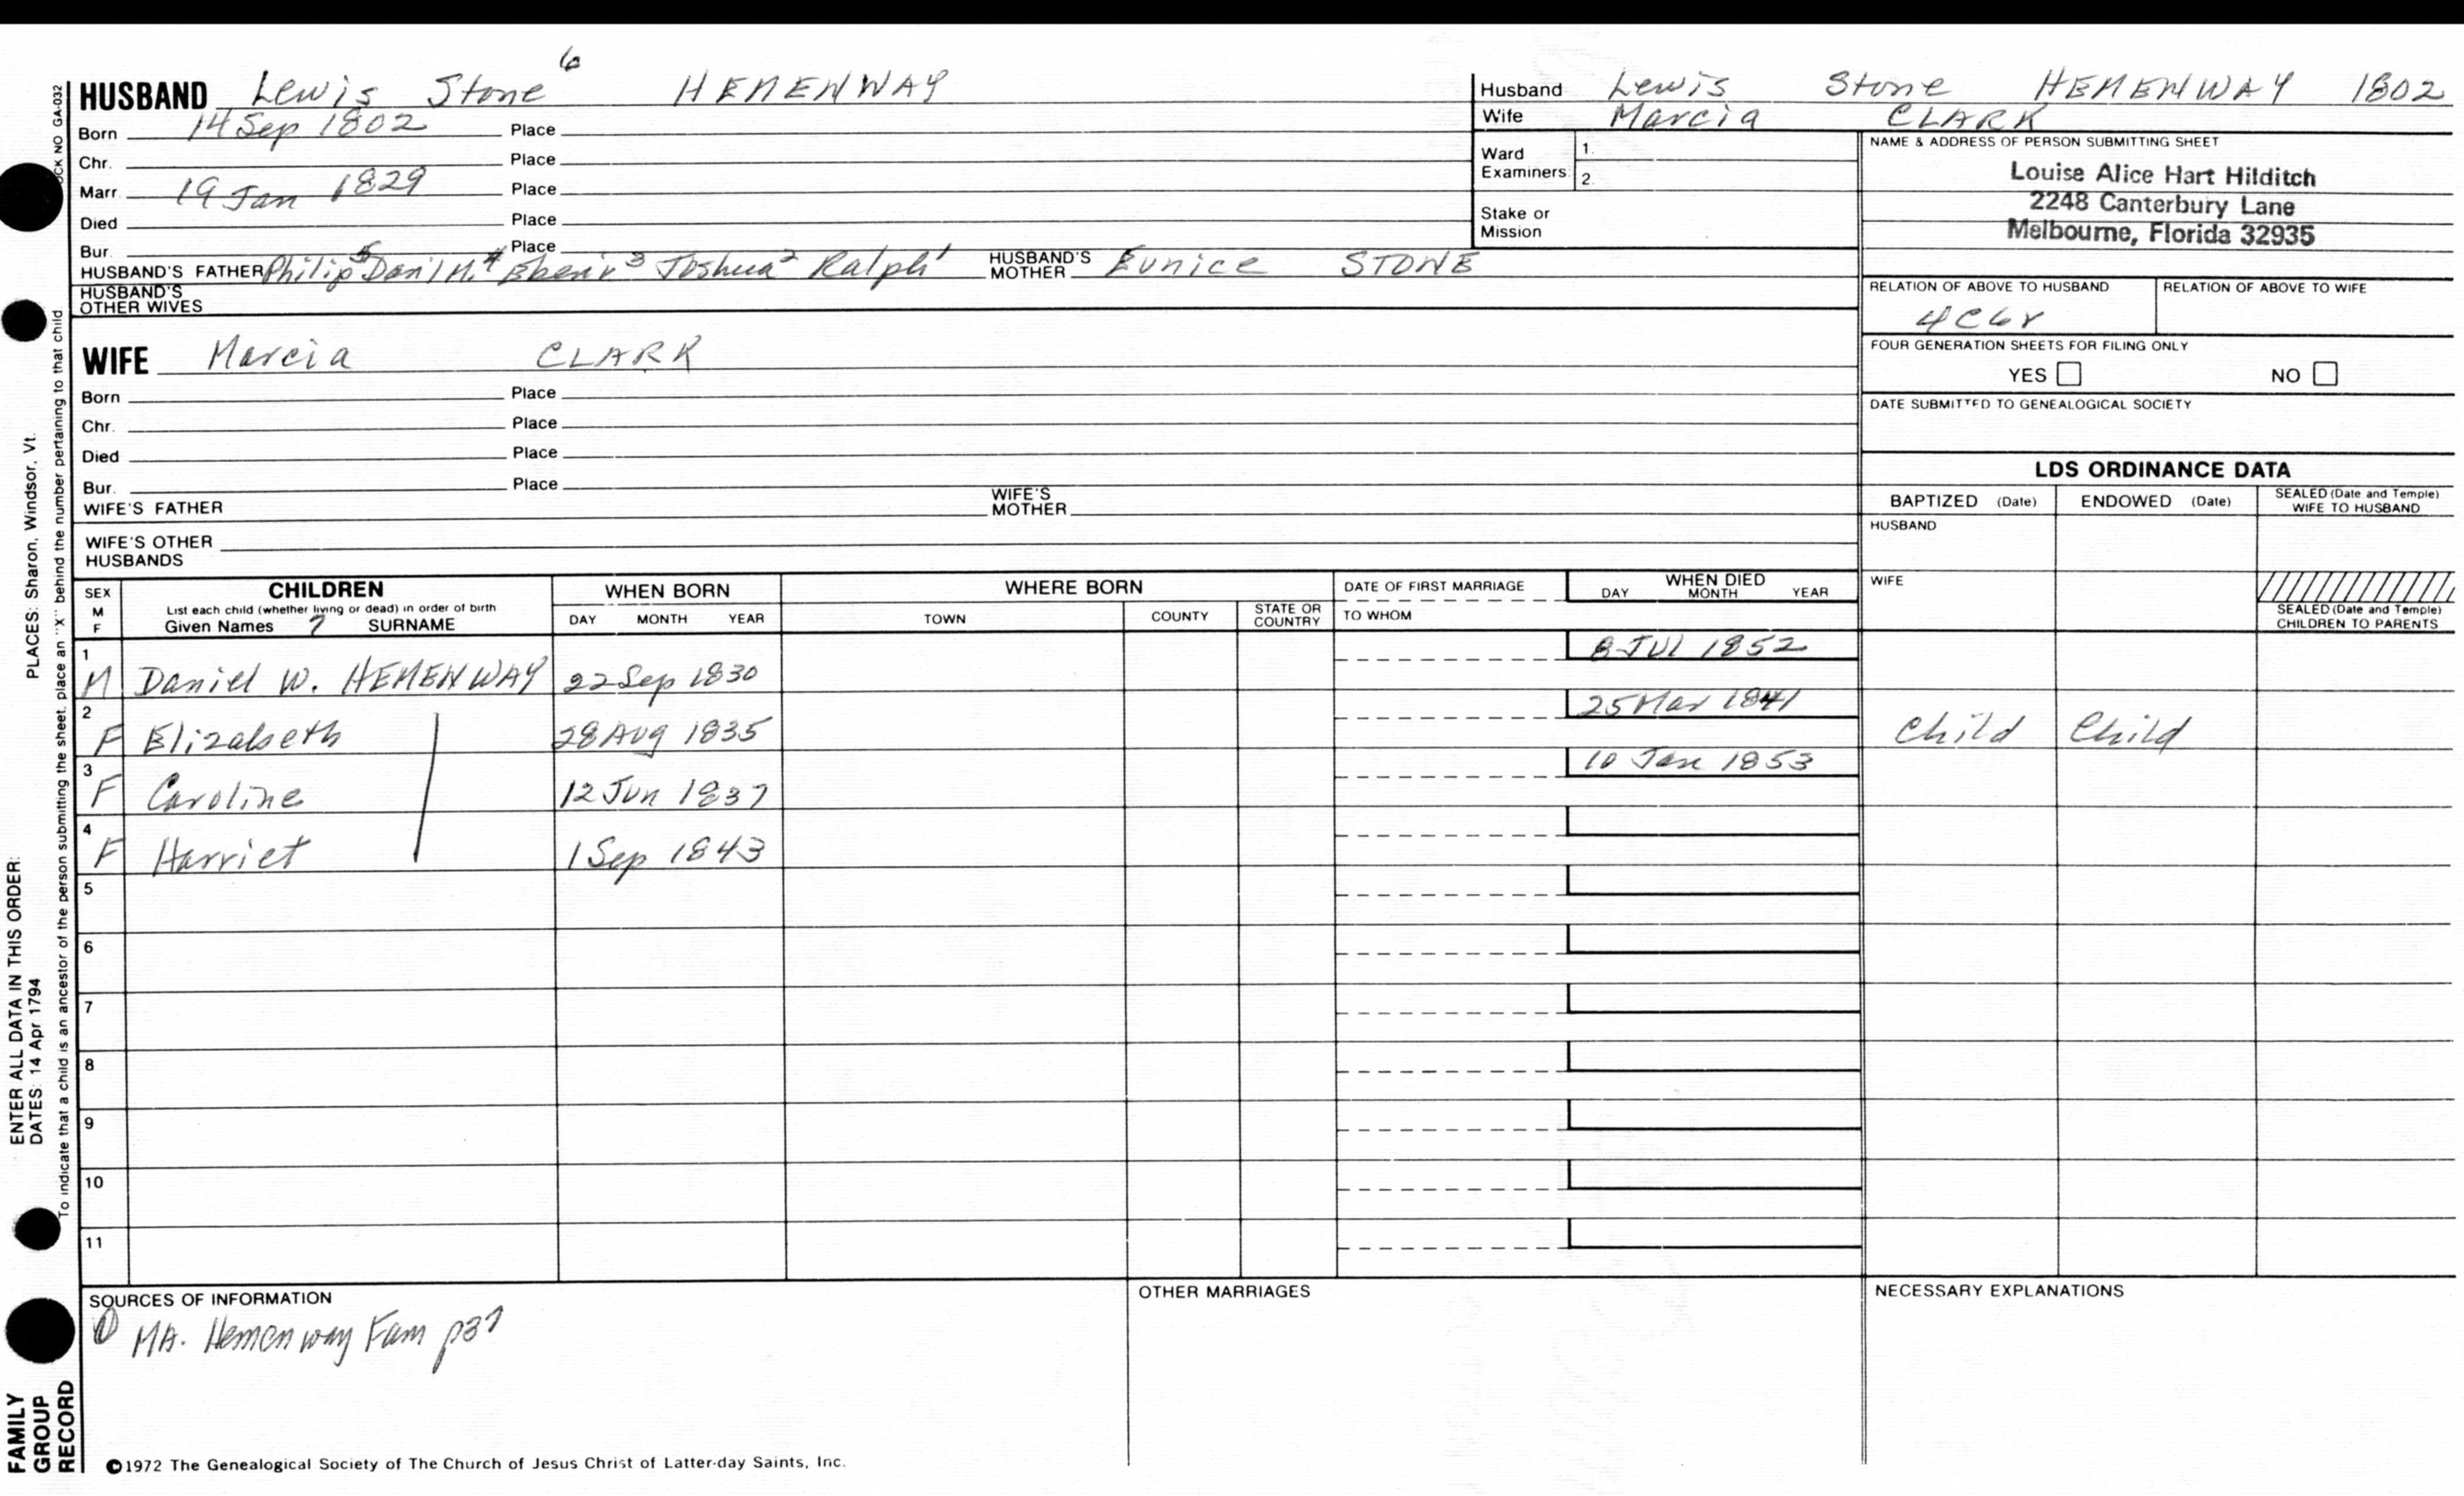 HUSBAND Lewis Stone 6 HEMENWAY
Born 14 Sep 1802 Place
Chr. Place
Marr. 19 Jan 1829 Place
Died Place
Bur. Place
HUSBAND'S FATHER Philip 5 Dan'l M. 4 Eben'r 3 Joshua 2 Ralph 1 HUSBAND'S MOTHER Eunice STONE
HUSBAND'S OTHER WIVES
Husband Lewis Stone HEMENWAY 1802
Wife Marcia CLARK
Ward Examiners 1.
2.
Stake or Mission
NAME & ADDRESS OF PERSON SUBMITTING SHEET
Louise Alice Hart Hilditch
2248 Canterbury Lane
Melbourne, Florida 32935
RELATION OF ABOVE TO HUSBAND RELATION OF ABOVE TO WIFE
4C6r
FOUR GENERATION SHEETS FOR FILING ONLY
YES NO
DATE SUBMITTED TO GENEALOGICAL SOCIETY
WIFE Marcia CLARK
Born Place
Chr. Place
Died Place
Bur. Place
WIFE'S FATHER WIFE'S MOTHER
WIFE'S OTHER HUSBANDS
LDS ORDINANCE DATA
BAPTIZED (Date) ENDOWED (Date) SEALED (Date and Temple) WIFE TO HUSBAND
HUSBAND
WIFE
SEALED (Date and Temple) CHILDREN TO PARENTS
SEX M F
CHILDREN
List each child (whether living or dead) in order of birth
Given Names 7 SURNAME
WHEN BORN
DAY MONTH YEAR
WHERE BORN
TOWN COUNTY STATE OR COUNTRY
DATE OF FIRST MARRIAGE
TO WHOM
WHEN DIED
DAY MONTH YEAR
1 M Daniel W. HEMENWAY 22 Sep 1830 8 JUl 1852
2 F Elizabeth 28 Aug 1835 25 Mar 1841 Child Child
3 F Caroline 12 Jun 1837 10 Jan 1853
4 F Harriet 1 Sep 1843
5
6
7
8
9
10
11
SOURCES OF INFORMATION
① MA. Hemenway Fam p37
OTHER MARRIAGES
NECESSARY EXPLANATIONS
©1972 The Genealogical Society of The Church of Jesus Christ of Latter-day Saints, Inc.
FAMILY GROUP RECORD
ENTER ALL DATA IN THIS ORDER:
DATES: 14 Apr 1794 PLACES: Sharon, Windsor, Vt.
To indicate that a child is an ancestor of the person submitting the sheet, place an "X" behind the number pertaining to that child
NO GA-032